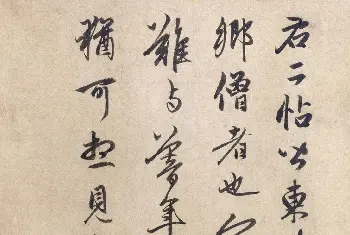 右二帖皆東
鄉僧者也
雖与暮年
猶可想見